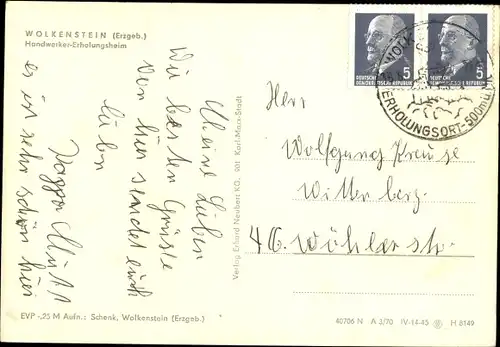 WOLKENSTEIN (Erzgeb.)
Handwerker-Erholungsheim
Meine Lieben
Die besten Grüße
von hier sendet euch
es ist sehr schön hier
Verlag Erhard Neubert KG. 901 Karl-Marx-Stadt
5
DEUTSCHE
DEMOKRATISCHE REPUBLIK
5
DEUTSCHE
DEMOKRATISCHE REPUBLIK
ERHOLUNGSORT-500m
Herr
Wolfgang Kreuse
Witterberg.
46. Wühler str.
EVP -,25 M Aufn.: Schenk, Wolkenstein (Erzgeb.)
40706 N A 3/70 IV-14-45 H 8149